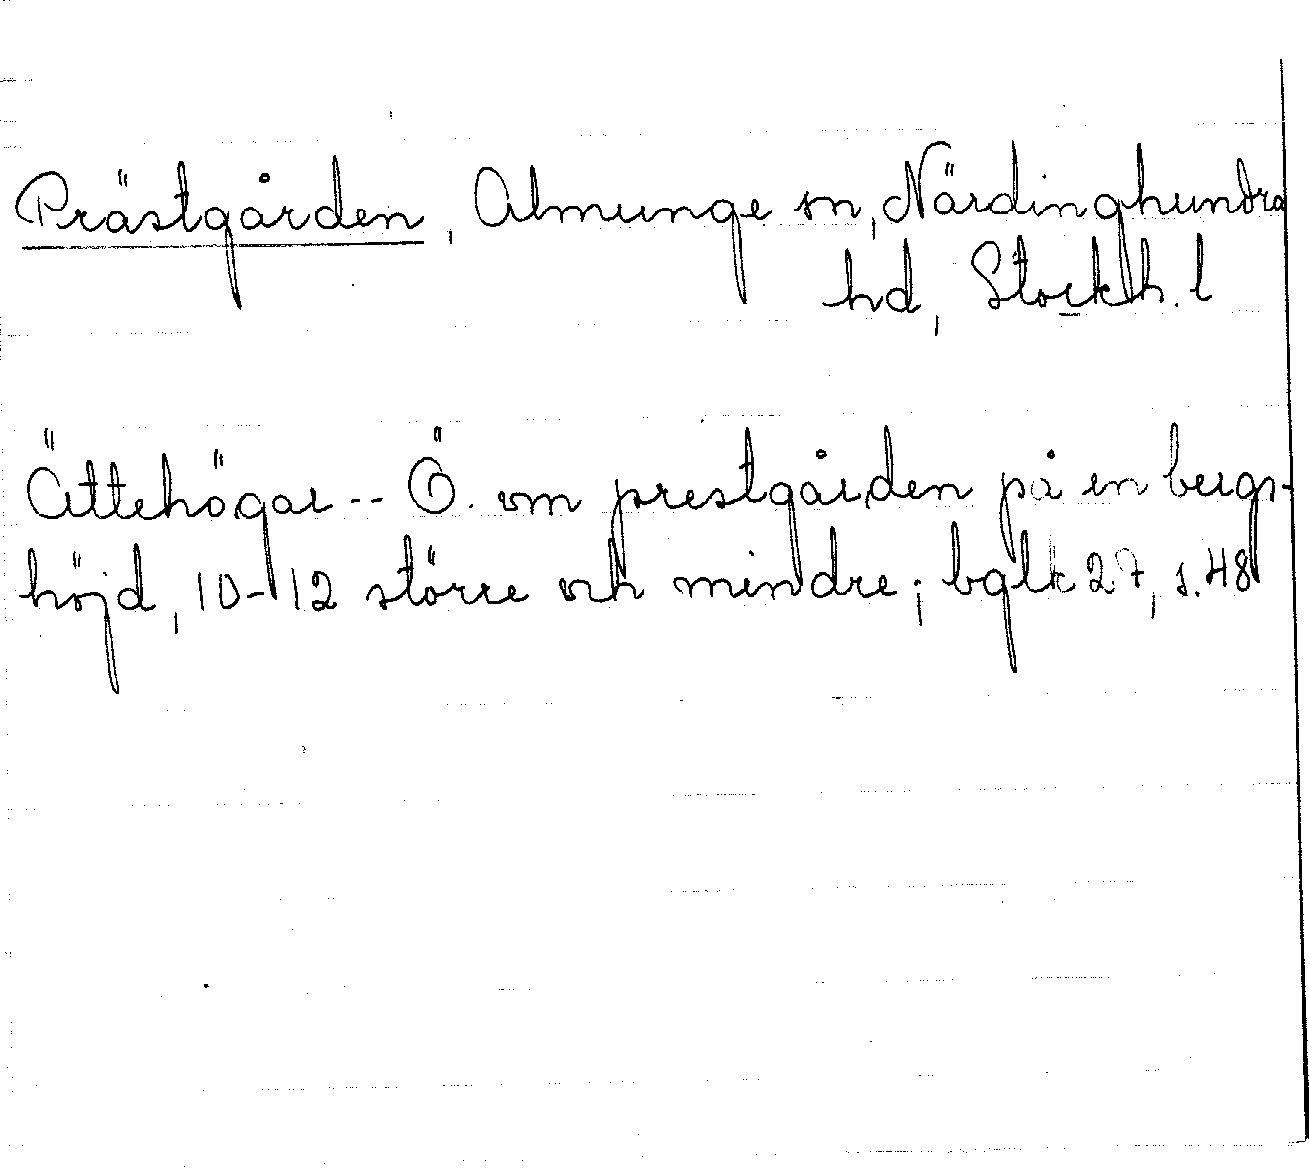 Prästgården, Almunge sn, Närdinghundra
hd, Stockh. l
Ättehögar -- Ö. om prestgården på en bergs-
höjd, 10-12 större och mindre; bglk 27, s. 48